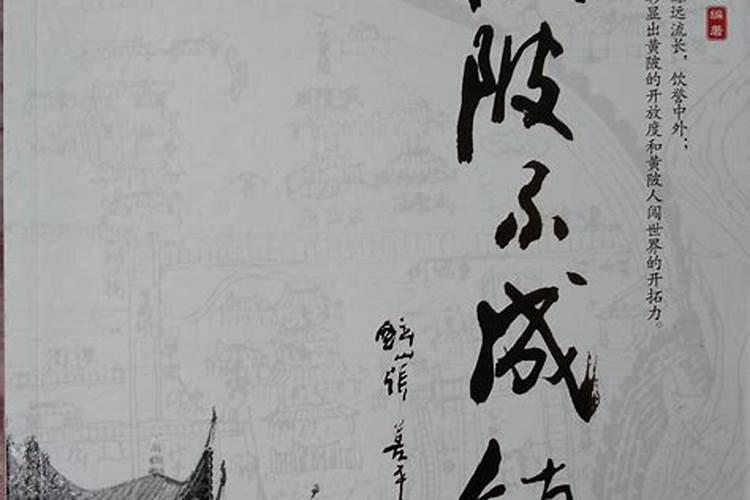 编著
远流长，饮誉中外；
彰显出黄陂的开放度和黄陂人闯世界的开拓力。
陂不成
善平